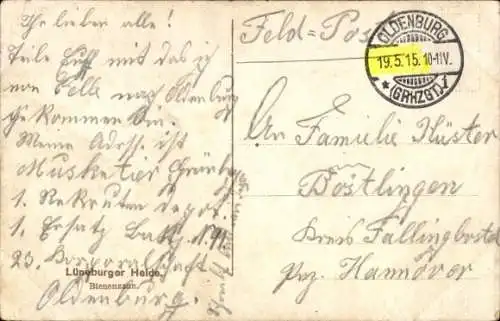 Ihr lieben alle!
Teile Euch mit das ich
von Celle nach Oldenburg
gekommen bin.
Meine Adress. ist
Musketier
1. Rekruten depot.
1. Ersatz Batl. N. 91
23. Korporalschaft.
Oldenburg.
Lüneburger Heide.
Bienenzaun.
Feld=Post
OLDENBURG
19.5.15.10-11V.
* (GRHZGT.)
An Familie Küster
Dostlingen
Kreis Fallingbostel
Prz. Hannover